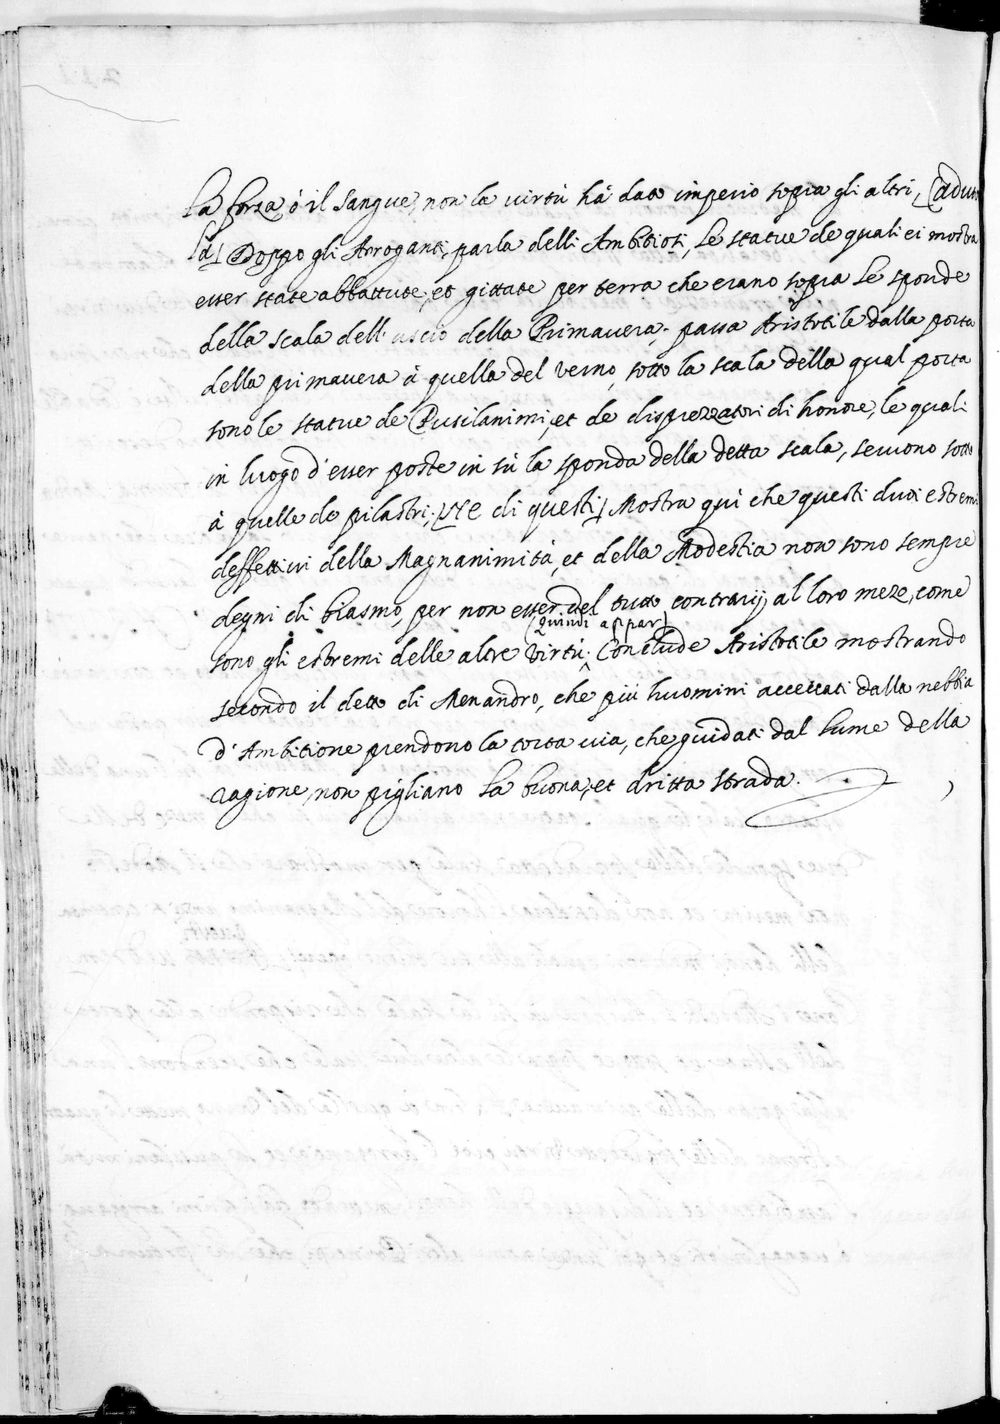 La forza, ò il sangue, non la virtù hà dato imperio sopra gli altri, (Adunt
Doppo gli Arroganti, parla delli Ambitiosi, le statue de quali ci mostra
esser state abbattute, et gittate per terra che erano sopra le sponde
della scala dell' uscio della Primavera; passa Aristotile dalla porta
della primavera à quella del verno, sotto la scala della qual porta
sono le statue de Pusilanimi, et de disprezzatori di honore, le quali
in luogo d'esser poste in sù la sponda della detta scala, servono sotto
à quelle de pilastri; [Ne di questi] Mostra qui che questi duoi estremi
deffettivi della Magnanimità, et della Modestia non sono sempre
degni di biasmo, per non esser del tutto contrarij al loro mezo, come
(Quindi appar)
sono gli estremi delle altre virtù. Conclude Aristotile mostrando
secondo il detto di Menandro, che più huomini acceccati dalla nebbia
d'Ambitione prendono la torta via, che guidati dal lume della
ragione, non pigliano la buona, et dritta strada.